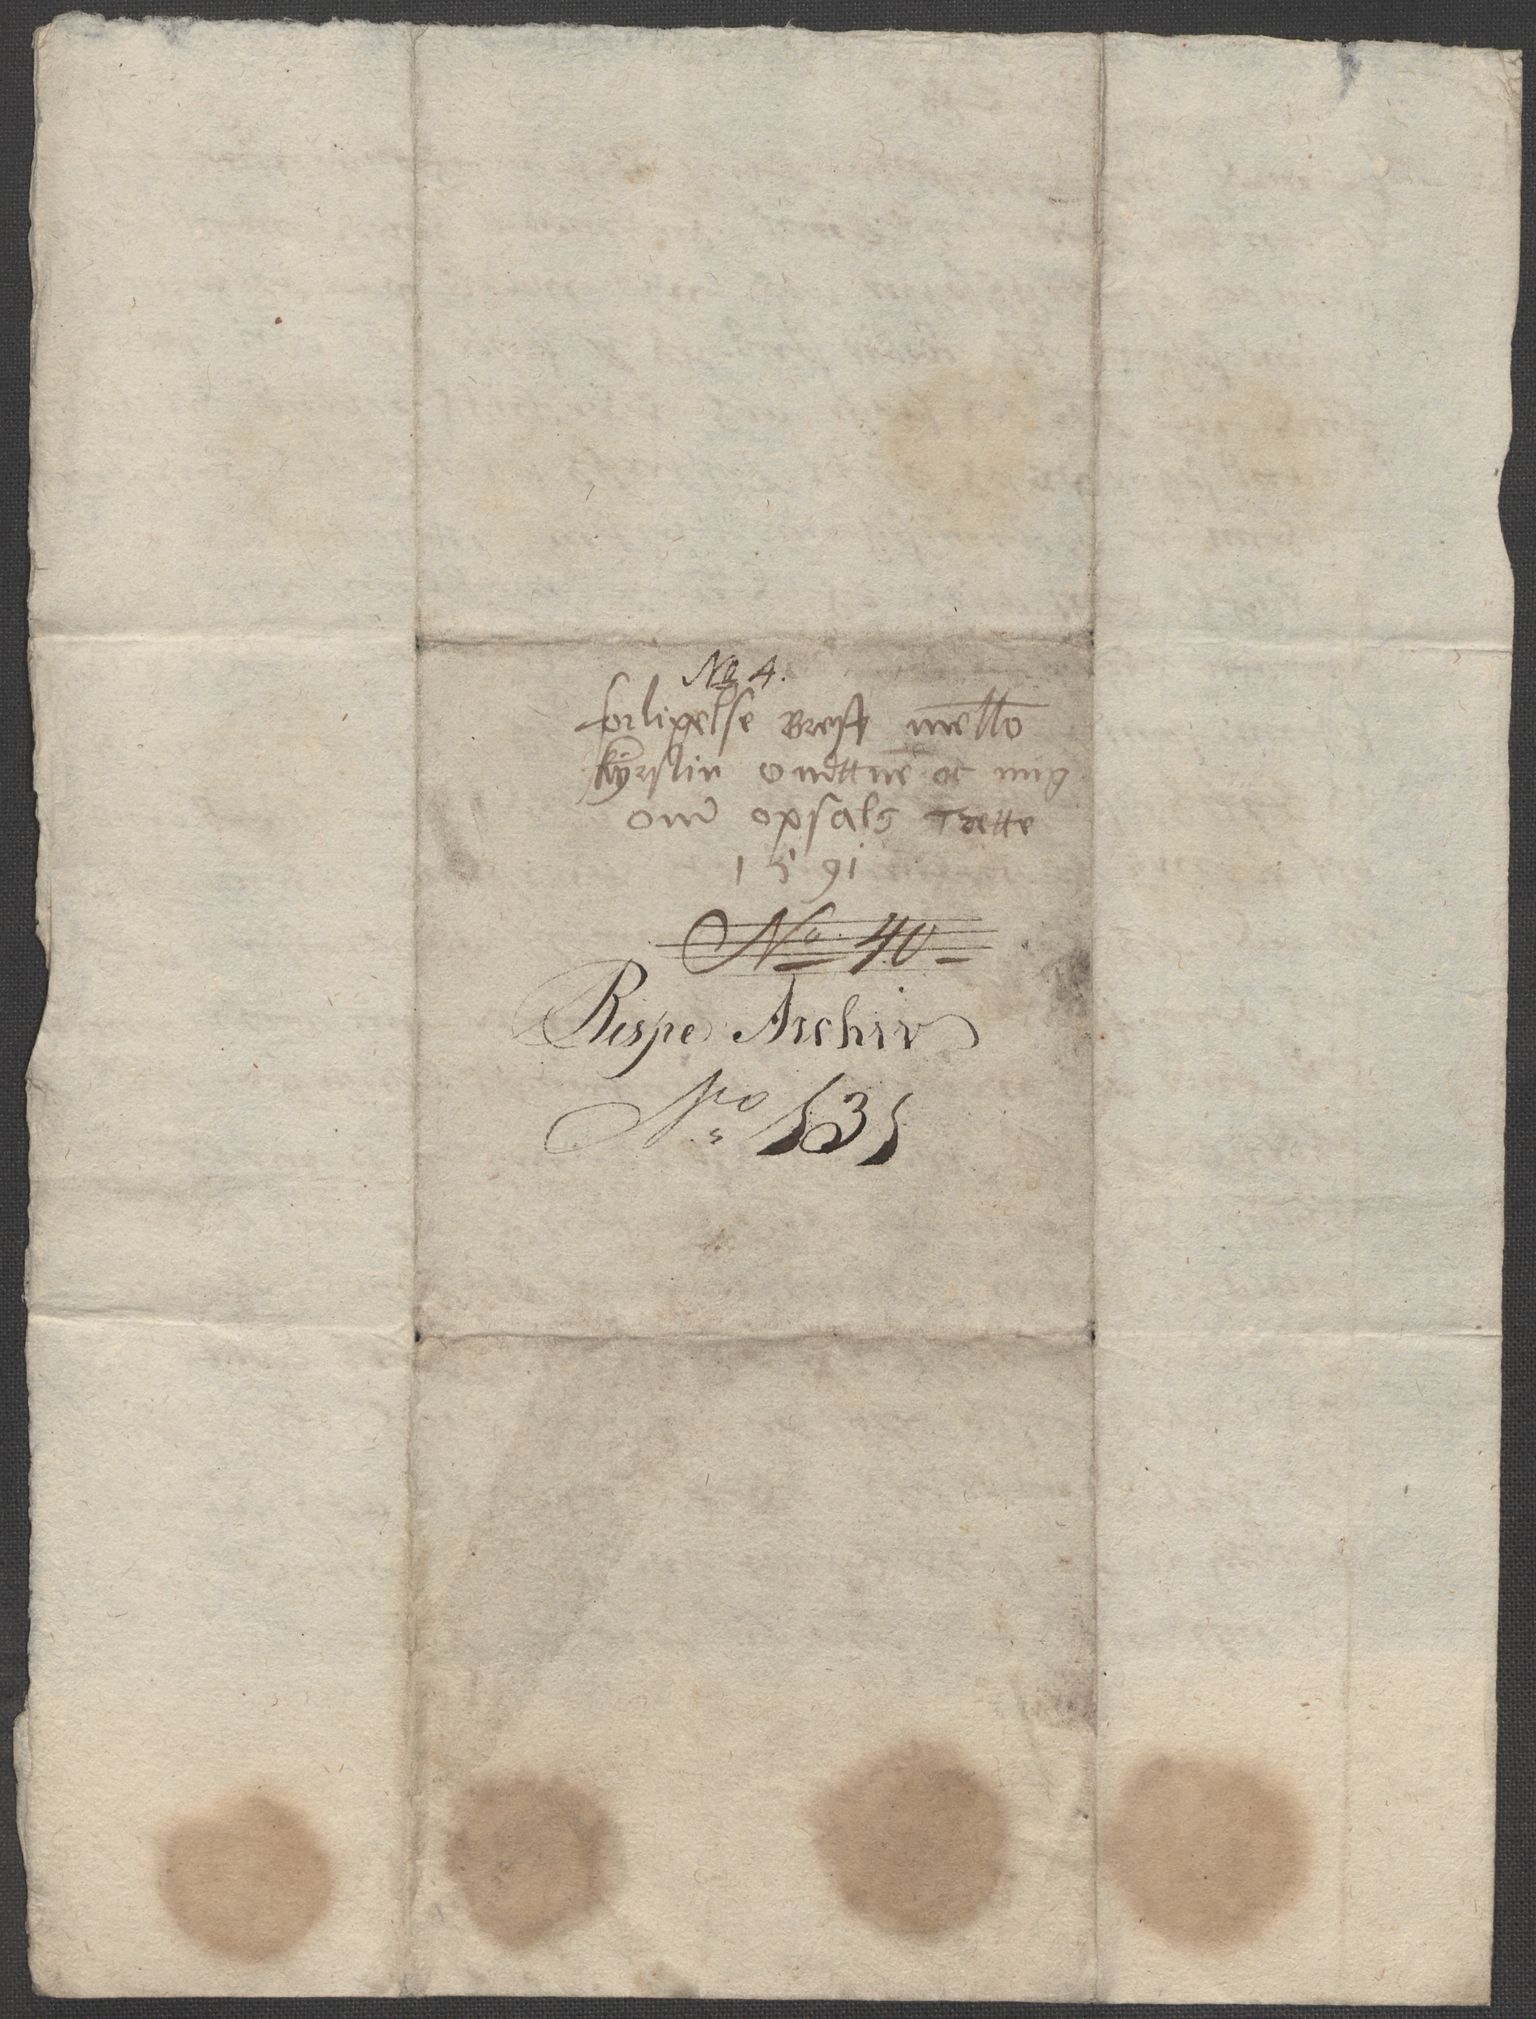 No 4.
forligelse Breff mello
kÿrstin ondttnē oc mig
om opsals Trette
1591
No 40
Rispe Archiv
No 535